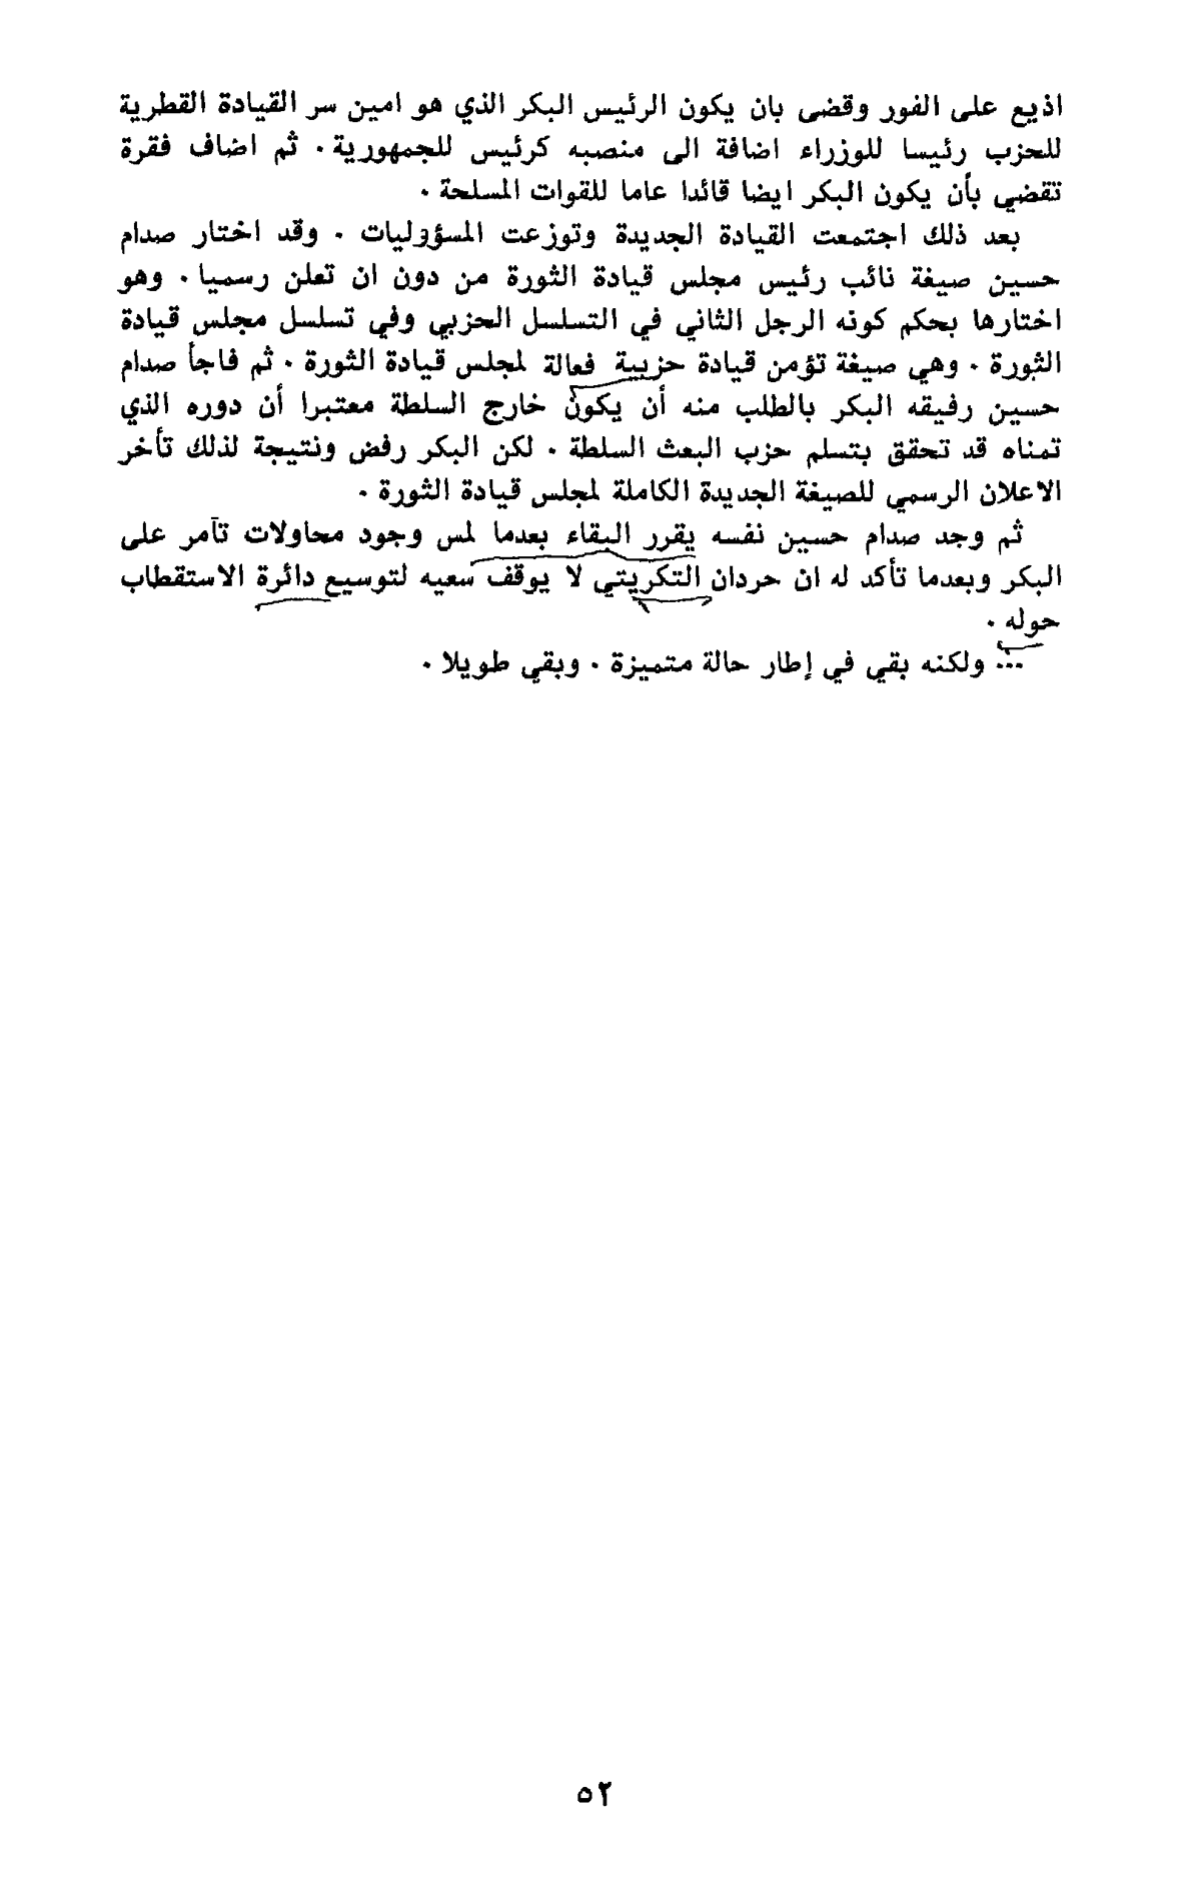 اذيع على الفور وقضى بان يكون الرئيس البكر الذي هو امين سر القيادة القطرية
للحزب رئيسا للوزراء اضافة الى منصبه كرئيس للجمهورية. ثم اضاف فقرة
تقضي بأن يكون البكر ايضا قائدا عاما للقوات المسلحة.
بعد ذلك اجتمعت القيادة الجديدة وتوزعت المسؤوليات. وقد اختار صدام
حسين صيغة نائب رئيس مجلس قيادة الثورة من دون ان تعلن رسميا. وهو
اختارها بحكم كونه الرجل الثاني في التسلسل الحزبي وفي تسلسل مجلس قيادة
الثورة. وهي صيغة تؤمن قيادة حزبية فعالة لمجلس قيادة الثورة. ثم فاجأ صدام
حسين رفيقه البكر بالطلب منه أن يكون خارج السلطة معتبرا أن دوره الذي
تمناه قد تحقق بتسلم حزب البعث السلطة. لكن البكر رفض ونتيجة لذلك تأخر
الاعلان الرسمي للصيغة الجديدة الكاملة لمجلس قيادة الثورة.
ثم وجد صدام حسين نفسه يقرر البقاء بعدما لمس وجود محاولات تآمر على
البكر وبعدما تأكد له ان حردان التكريتي لا يوقف سعيه لتوسيع دائرة الاستقطاب
حوله.
... ولكنه بقي في إطار حالة متميزة. وبقي طويلا.
٥٢